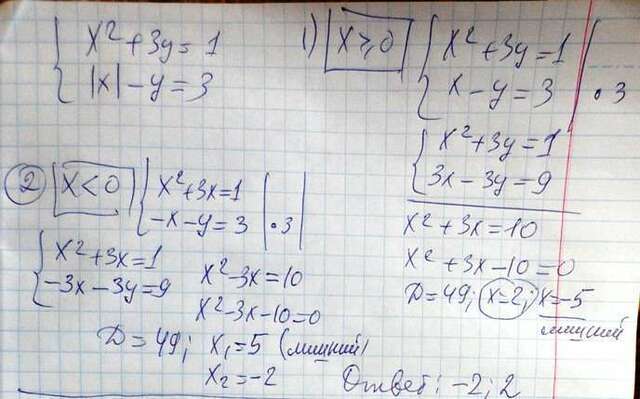 { x² + 3y = 1
|x| - y = 3
1) x ⩾ 0 { x² + 3y = 1
x - y = 3 | · 3
{ x² + 3y = 1
3x - 3y = 9
x² + 3x = 10
x² + 3x - 10 = 0
D = 49; x = 2; x = -5
лишний
2 x < 0 { x² + 3x = 1
-x - y = 3 | · 3
{ x² + 3x = 1
-3x - 3y = 9
x² - 3x = 10
x² - 3x - 10 = 0
D = 49; x₁ = 5 (лишний)
x₂ = -2
Ответ: -2; 2